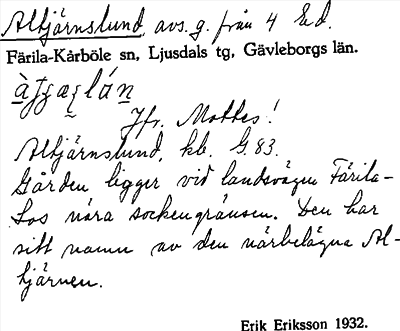 Altjärnslund, avs. g. från 4 Ed.
Färila-Kårböle sn, Ljusdals tg, Gävleborgs län.
Jfr. Mattes!
Altjärnslund, kb. G. 83.
Gården ligger vid landsvägen Färila-
Los nära sockengränsen. Den har
sitt namn av den närbelägna Al-
tjärnen.
Erik Eriksson 1932.